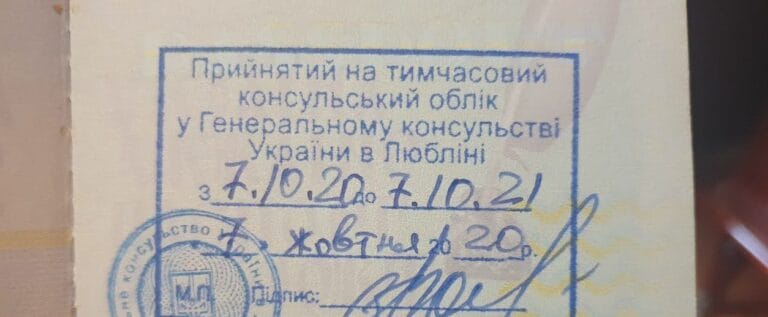 Прийнятий на тимчасовий
консульський облік
у Генеральному консульстві
України в Любліні
з 7.10.20 до 7.10.21
7. жовтня 2020 р.
консульство України
М.П. Підпис: